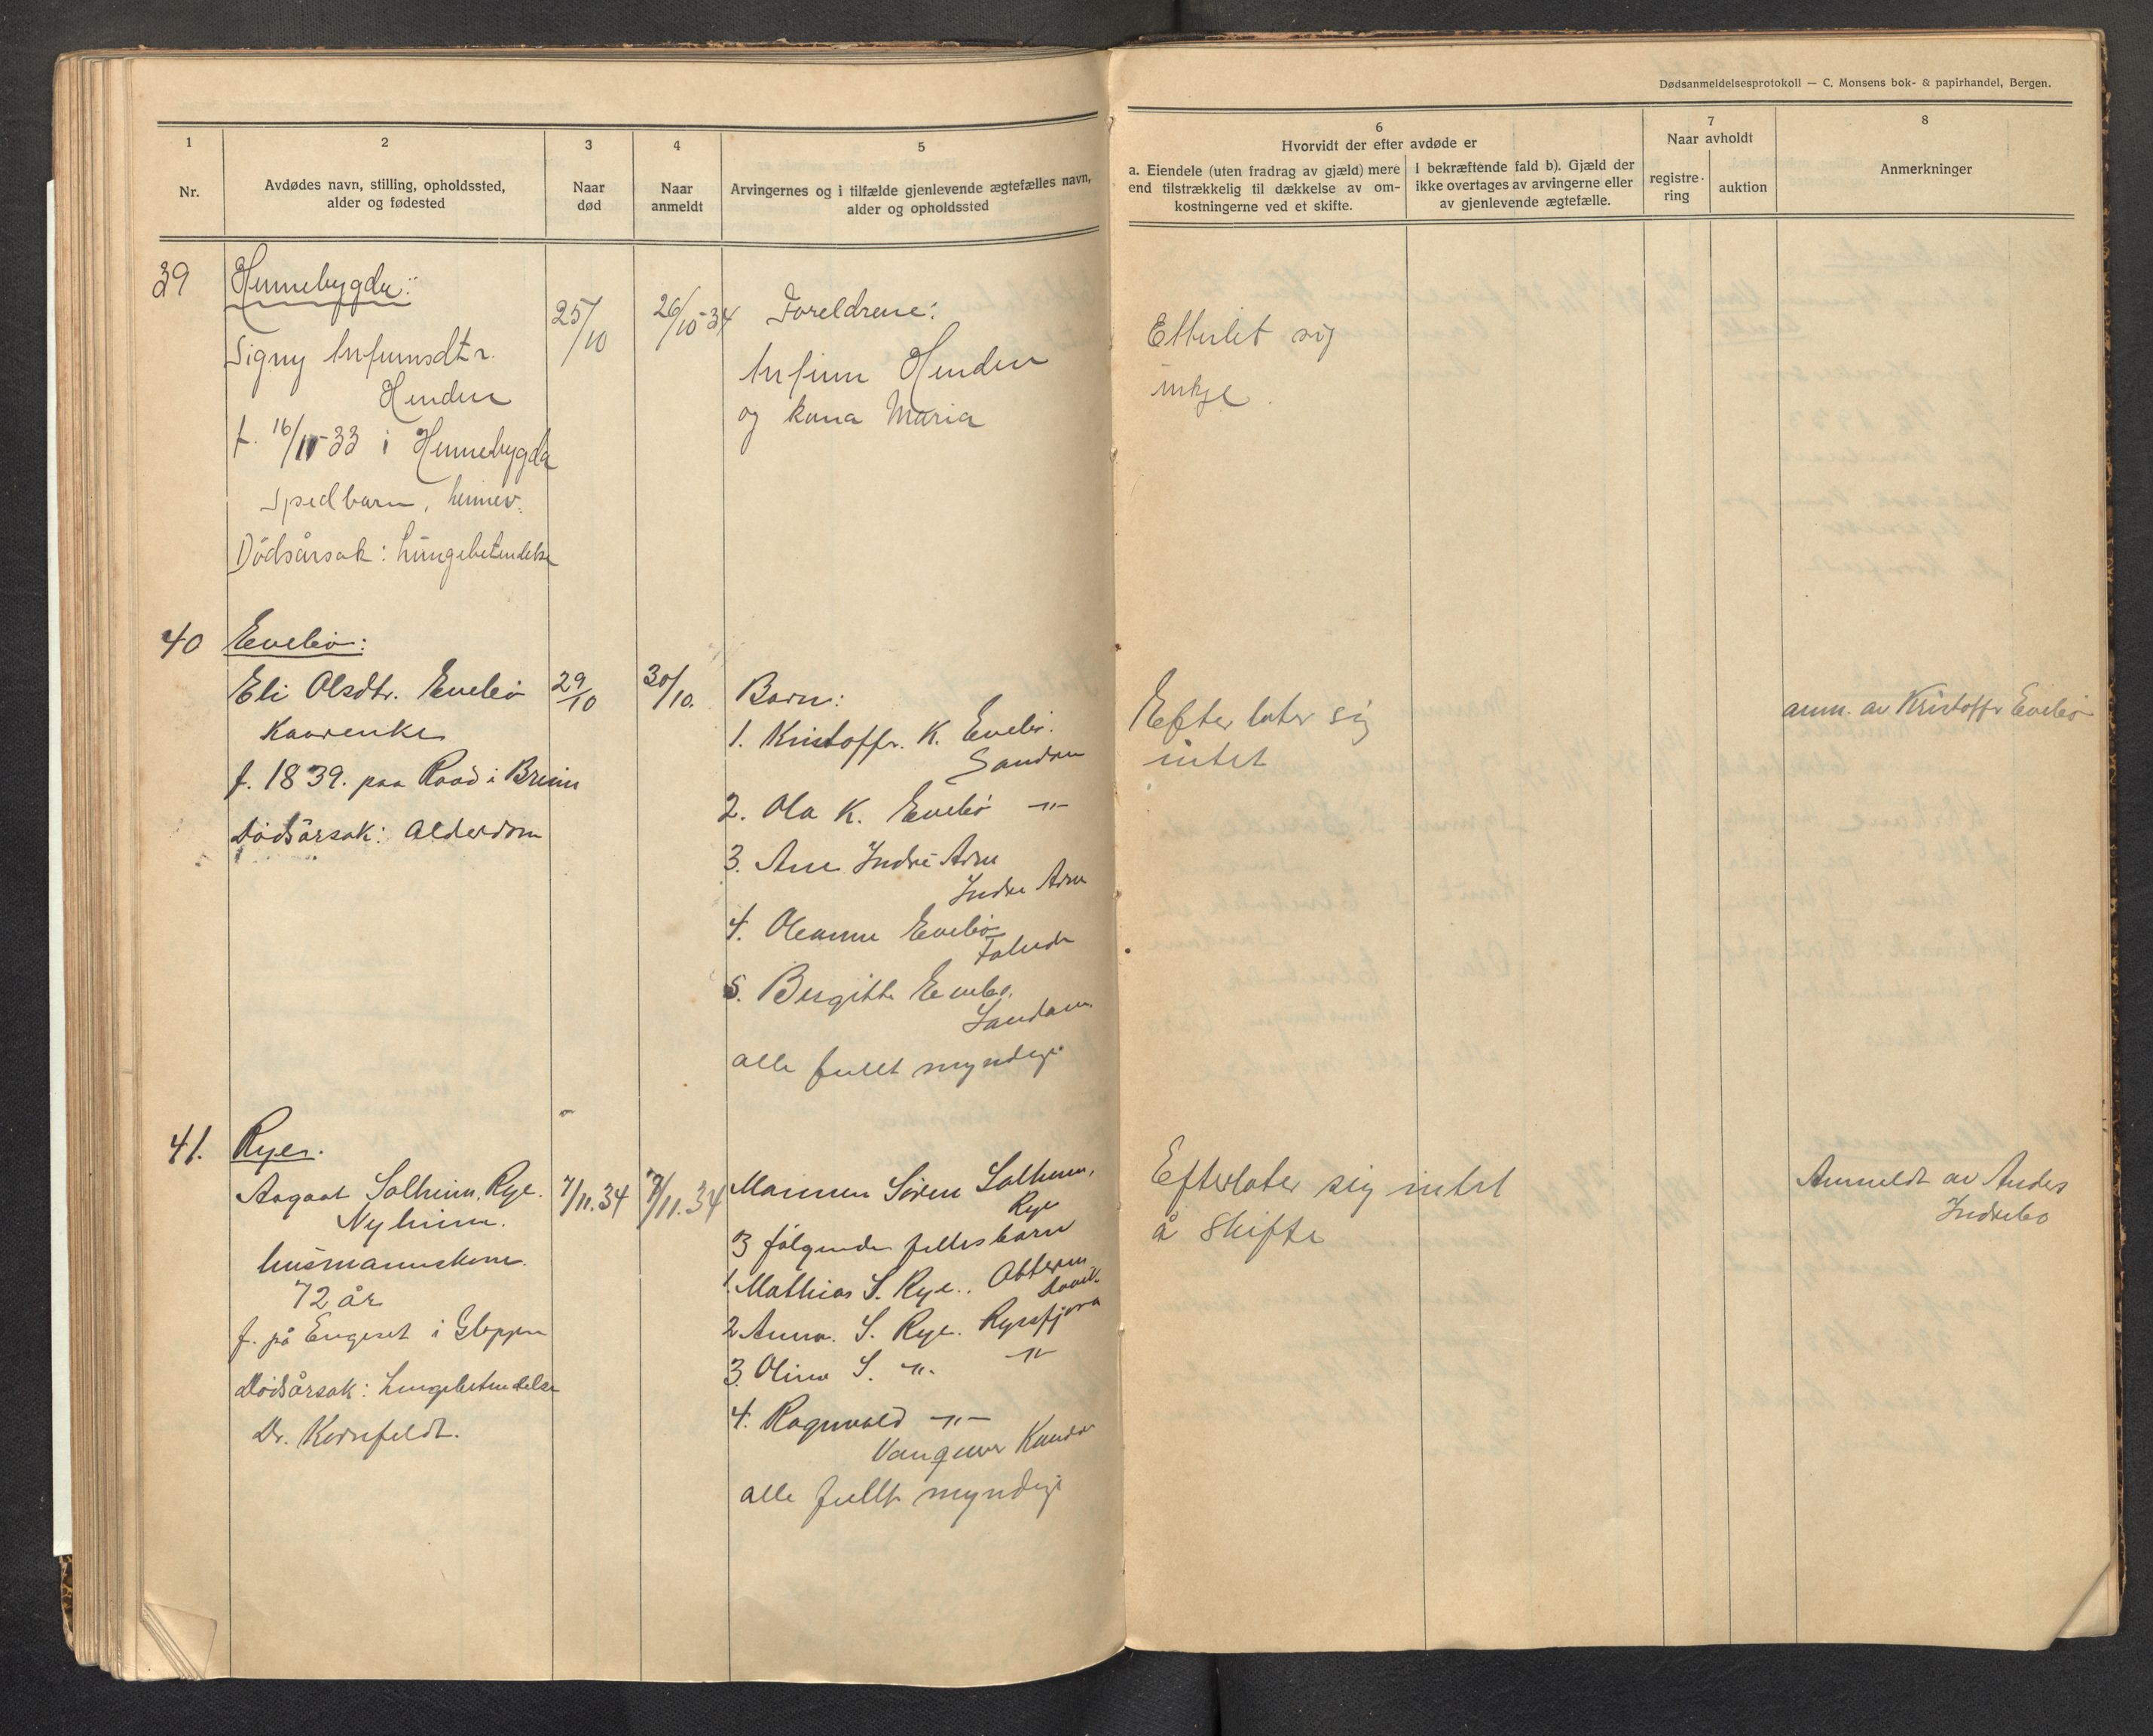 Dødsanmeldelsesprotokoll — C. Monsens bok- & papirhandel, Bergen.
1
Nr.
2
Avdødes navn, stilling, opholdssted,
alder og fødested
3
Naar
død
4
Naar
anmeldt
5
Arvingernes og i tilfælde gjenlevende ægtefælles navn,
alder og opholdssted
6
Hvorvidt der efter avdøde er
a. Eiendele (uten fradrag av gjæld) mere
end tilstrækkelig til dækkelse av om-
kostningerne ved et skifte.
I bekræftende fald b). Gjæld der
ikke overtages av arvingerne eller
av gjenlevende ægtefælle.
7
Naar avholdt
registre-
ring
auktion
8
Anmerkninger
39
Hennebygda:
Signy Anfinnsdtr.
Henden
f. 16/11-33 i Hennebygda
Spedbarn, heimev.
Dödsårsak: Lungebetendelse
25/10
26/10-34
Foreldrene:
Anfinn Henden
og kona Maria
Etterlet sig
inkje.
40
Evebö:
Eli Olsdtr. Evebö
Kaarenke
f. 1839. paa Raad i Breim
Dødsårsak: Alderdom
29/10
30/10.
Barn:
1. Kristoffr. K. Evebö.
Sandane
2. Ola K. Evebö -"-
3. Ane Indre Arne
Indre Arne
4. Oleanne Evebö
5. Birgitte Evebö.
Sandane.
alle fullt myndige
Efterlater sig
intet
anm. av Kristoffr Evebö
41.
Rye.
Aagaat Solheim, Rye.
Nyheim.
husmannskone.
72 år
f. på Engeset i Gloppen
Dødsårsak: Lungebetendelse
Dr. Kornfeldt.
7/11.34
9/11.34
Mannen Søren Solheim,
Rye
3 følgende fellesbarn
1. Mathias S. Rye..
Davik.
2 Anna. S. Rye. Rysfjøra
3. Olina S. -"- -"-
4. Ragnvald -"-
Vanquver Kanada
alle fullt myndige
Efterlater sig intet
å skifte
Anmeldt av Anders
Indrebo